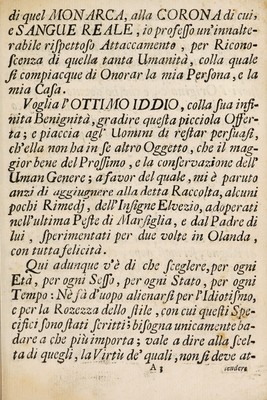 di quel MONARCA, alla CORONA di cui,
e SANGUE REALE, io professo un'innalte-
rabile rispettoso Attaccamento, per Ricono-
scenza di quella tanta Umanità, colla quale
si compiacque di Onorar la mia Persona, e la
mia Casa.
Voglia l'OTTIMO IDDIO, colla sua infi-
nità Benignità, gradire questa picciola Offer-
ta; e piaccia agl' Uomini di restar persuasi,
ch'ella non ha in se altro Oggetto, che il mag-
gior bene del Prossimo, e la conservazione dell'
Uman Genere; a favor del quale, mi è paruto
anzi di aggiugnere alla detta Raccolta, alcuni
pochi Rimedj, dell'Insigne Elvezio, adoperati
nell'ultima Peste di Marsiglia, e dal Padre di
lui, sperimentati per due volte in Olanda,
con tutta felicità.
Qui adunque v'è di che sceglere, per ogni
Età, per ogni Sesso, per ogni Stato, per ogni
Tempo: Nè fà d'uopo alienarsi per l'Idiotismo,
e per la Rozezza dello stile, con cui questi Spe-
cifici sono stati scritti: bisogna unicamente ba-
dare a che più importa; vale a dire alla scel-
ta di quegli, la Virtù de' quali, non si deve at-
A 3
tendere